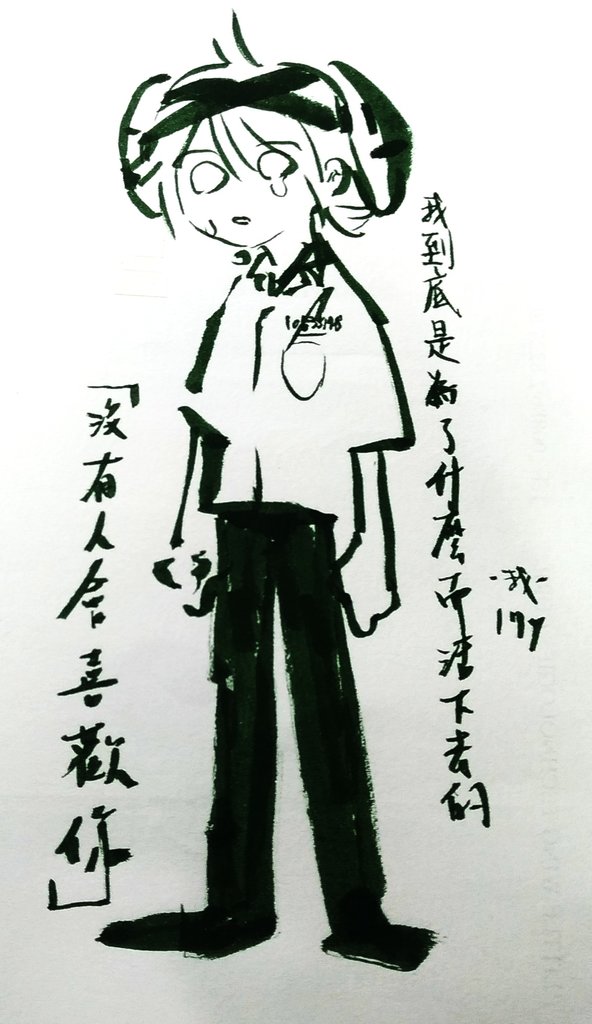 我到底是為了什麼而活下去的
-我-
17y
「沒有人會喜歡你」